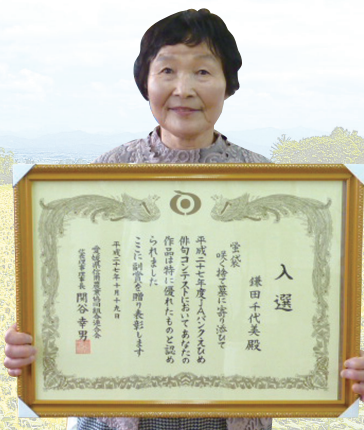 入選
鎌田千代美殿
蛍袋
咲く捨て墓に寄り添ひて
平成二十七年度JAバンクえひめ
俳句コンテストにおいてあなたの
作品は特に優れたものと認め
られました
ここに副賞を贈り表彰します
平成二十七年十月十九日
愛媛県信用農業協同組合連合会
経営管理委員会会長 関谷幸男